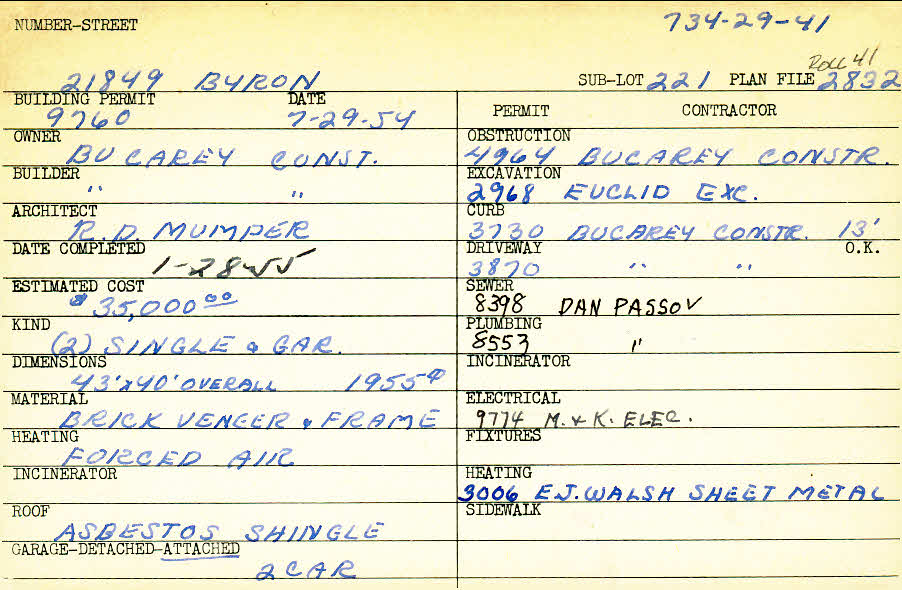 NUMBER-STREET 734-29-41
ROLL 41
21849 BYRON SUB-LOT 221 PLAN FILE 2832
BUILDING PERMIT DATE
9760 7-29-54
OWNER
BUCAREY CONST.
BUILDER
" "
ARCHITECT
R.D. MUMPER
DATE COMPLETED
1-28-55
ESTIMATED COST
$35,000 00
KIND
(2) SINGLE & GAR.
DIMENSIONS
43'x40' OVERALL 1955 ⌀
MATERIAL
BRICK VENEER & FRAME
HEATING
FORCED AIR
INCINERATOR
ROOF
ASBESTOS SHINGLE
GARAGE-DETACHED-ATTACHED
2 CAR
PERMIT CONTRACTOR
OBSTRUCTION
4964 BUCAREY CONSTR.
EXCAVATION
2968 EUCLID EXC.
CURB
3730 BUCAREY CONSTR. 13'
DRIVEWAY O.K.
3870 " "
SEWER
8398 DAN PASSOV
PLUMBING
8553 "
INCINERATOR
ELECTRICAL
9774 M. & K. ELEC.
FIXTURES
HEATING
3006 E.J. WALSH SHEET METAL
SIDEWALK